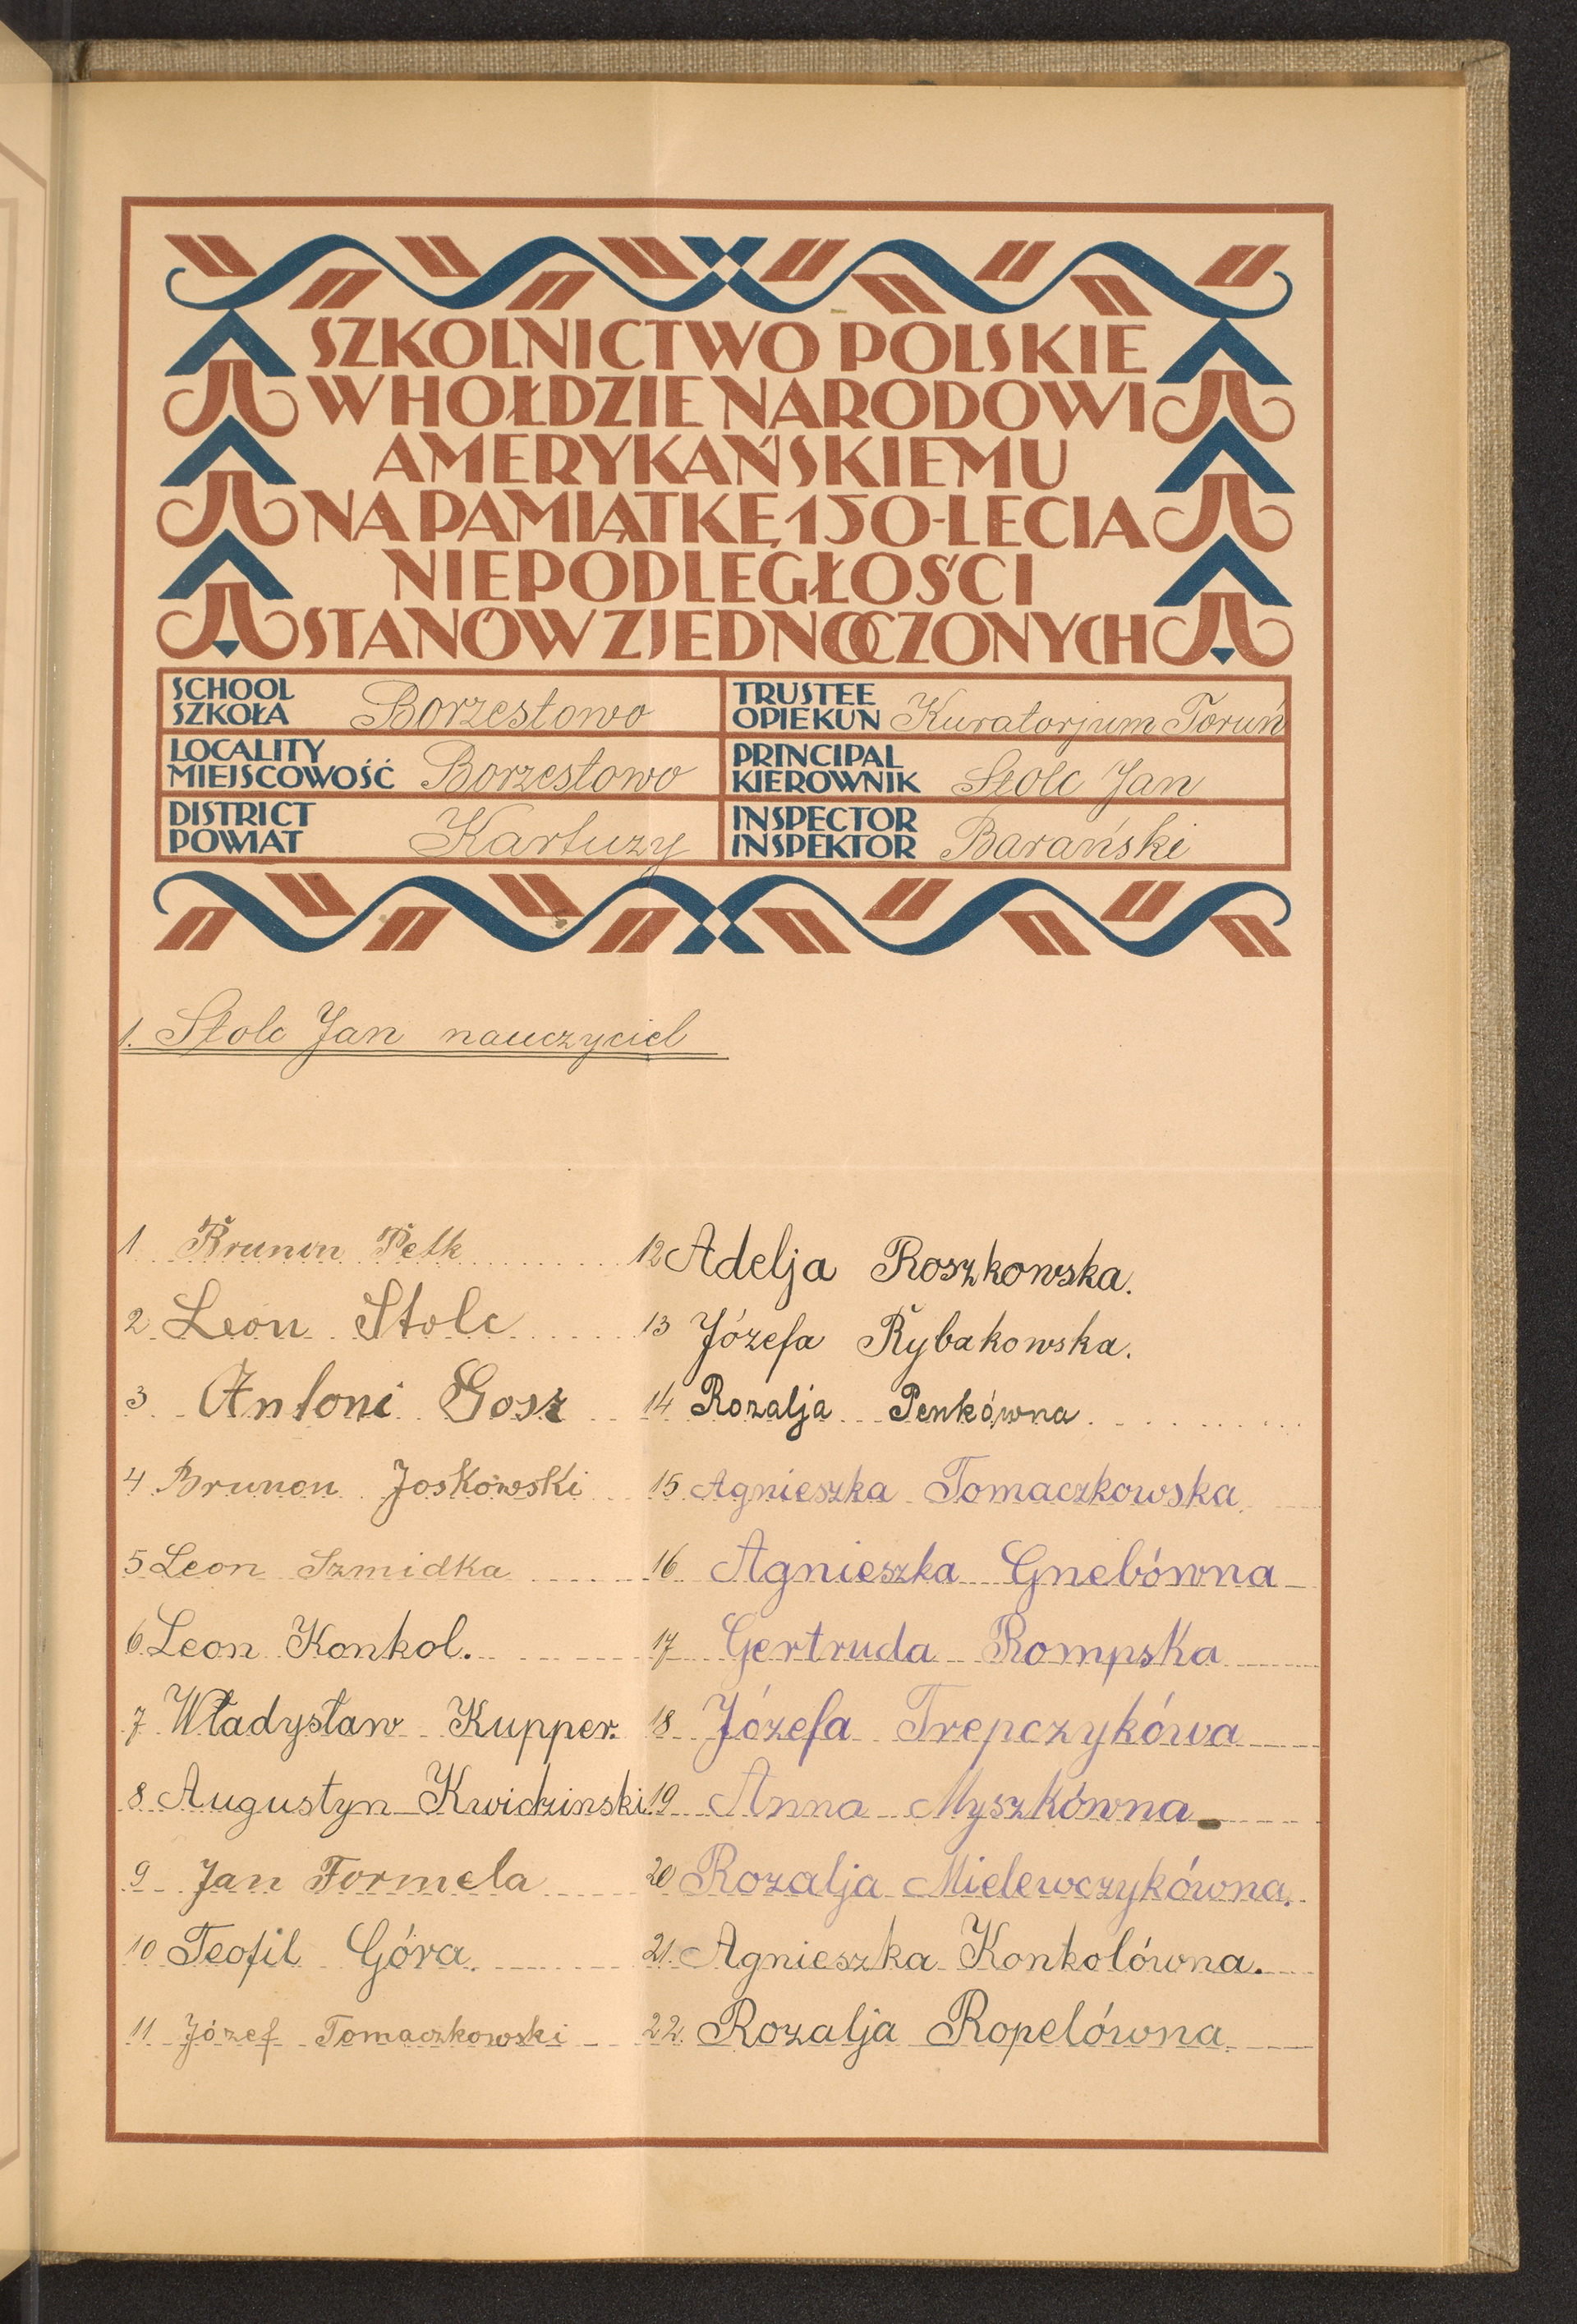 SZKOLNICTWO POLSKIE
W HOŁDZIE NARODOWI
AMERYKAŃSKIEMU
NA PAMIĄTKĘ 150-LECIA
NIEPODLEGŁOŚCI
STANÓW ZJEDNOCZONYCH
SCHOOL
SZKOŁA Borzestowo
TRUSTEE
OPIEKUN Kuratorjum Toruń
LOCALITY
MIEJSCOWOŚĆ Borzestowo
PRINCIPAL
KIEROWNIK Stolc Jan
DISTRICT
POWIAT Kartuzy
INSPECTOR
INSPEKTOR Barański
1. Stolc Jan nauczyciel
1 Brunon Pelk
2 Leon Stolc
3 Antoni Gosz
4 Brunon Joskowski
5 Leon Szmidka
6 Leon Konkol.
7 Władysław Kupper.
8 Augustyn Kwidzinski
9 Jan Formela
10 Teofil Góra.
11 Józef Tomaczkowski
12 Adelja Roszkowska.
13 Józefa Rybakowska.
14 Rozalja Penkówna
15 Agnieszka Tomaczkowska
16 Agnieszka Gnebówna
17 Gertruda Rompska
18 Józefa Trepczykówa
19 Anna Myszkówna
20 Rozalja Mielewczykówna.
21. Agnieszka Konkolówna.
22. Rozalja Ropelówna